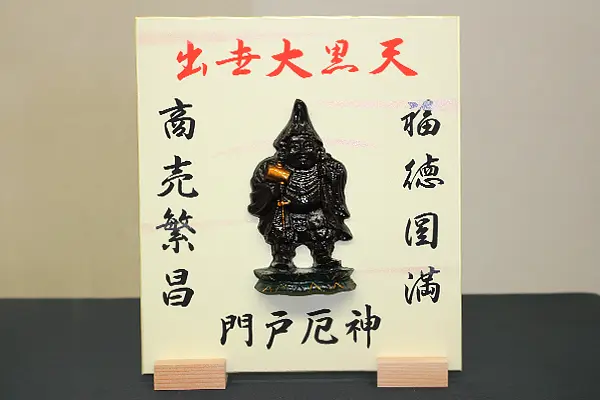 出世大黒天
福徳圓満
商売繁昌
門戸厄神